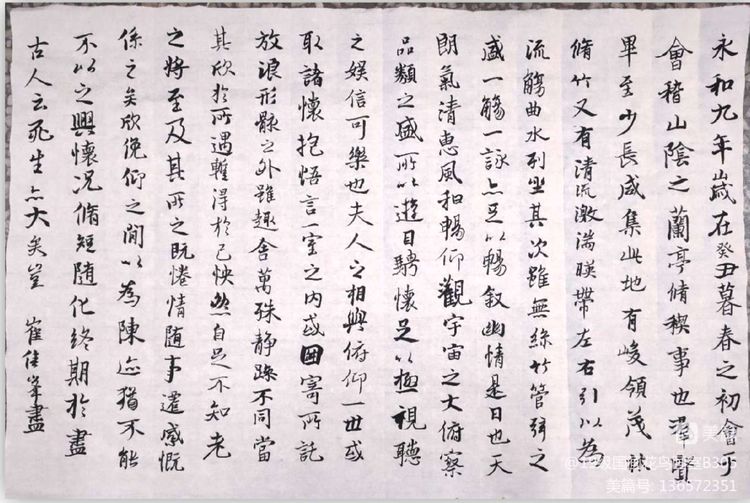 永和九年歲在癸丑暮春之初會于
會稽山陰之蘭亭脩稧事也
畢至少長咸集此地有峻領茂林
脩竹又有清流激湍暎帶左右引以為
流觴曲水列坐其次雖無絲竹管弦之
盛一觴一詠亦足以暢叙幽情是日也天
朗氣清惠風和暢仰觀宇宙之大俯察
品類之盛所以遊目騁懷足以極視聽
之娛信可樂也夫人之相與俯仰一世或
取諸懷抱悟言一室之內或因寄所託
放浪形骸之外雖趣舍萬殊静躁不同當
其欣於所遇蹔得於己怏然自足不知老
之將至及其所之既惓情随事遷感慨
係之矣欣俛仰之間以為陳迹猶不能
不以之興懷况脩短随化終期於盡
古人云死生亦大矣豈 崔佳峯
美篇
美篇号: 136572351